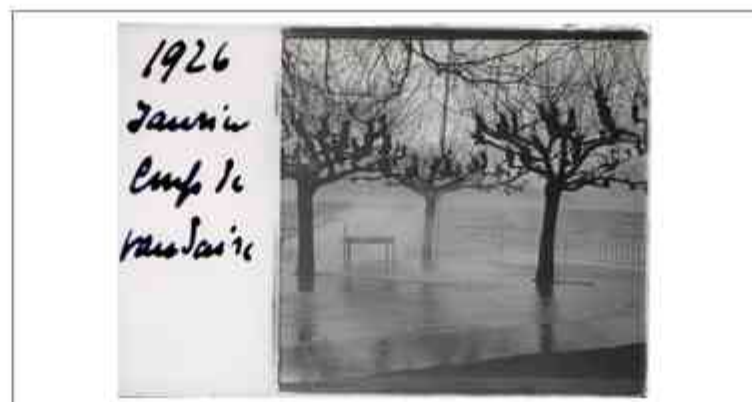 1926
Janvier
Coup de
vaudaire